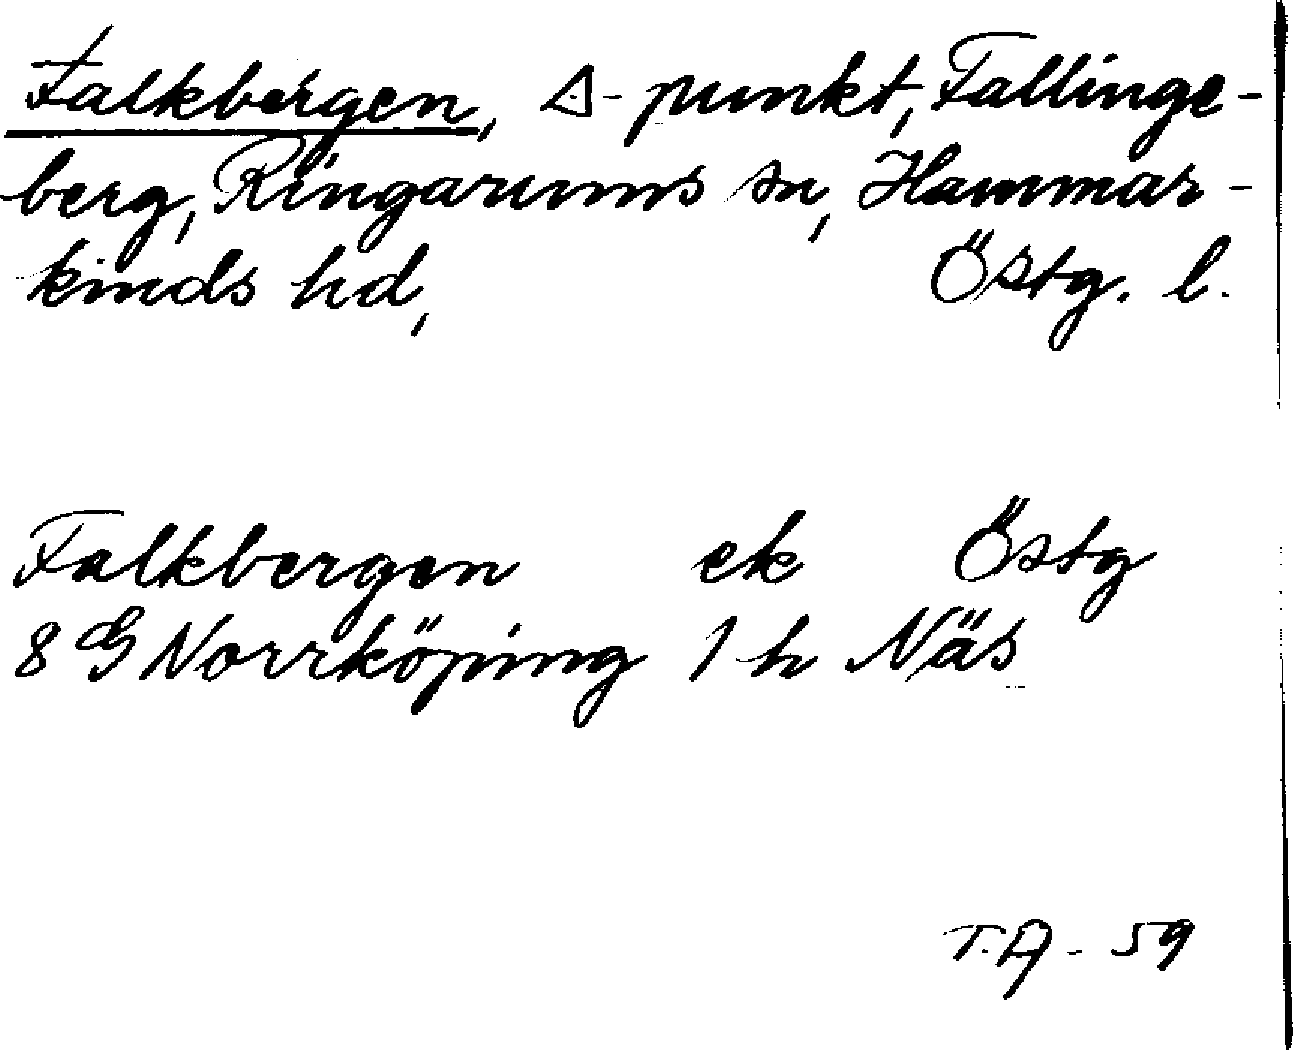 Falkbergen, △-punkt, Fallinge-
berg, Ringarums sn, Hammar-
kinds hd, Östg. l.
Falkbergen ek Östg
8 G Norrköping 1 h Näs
T.A - 59